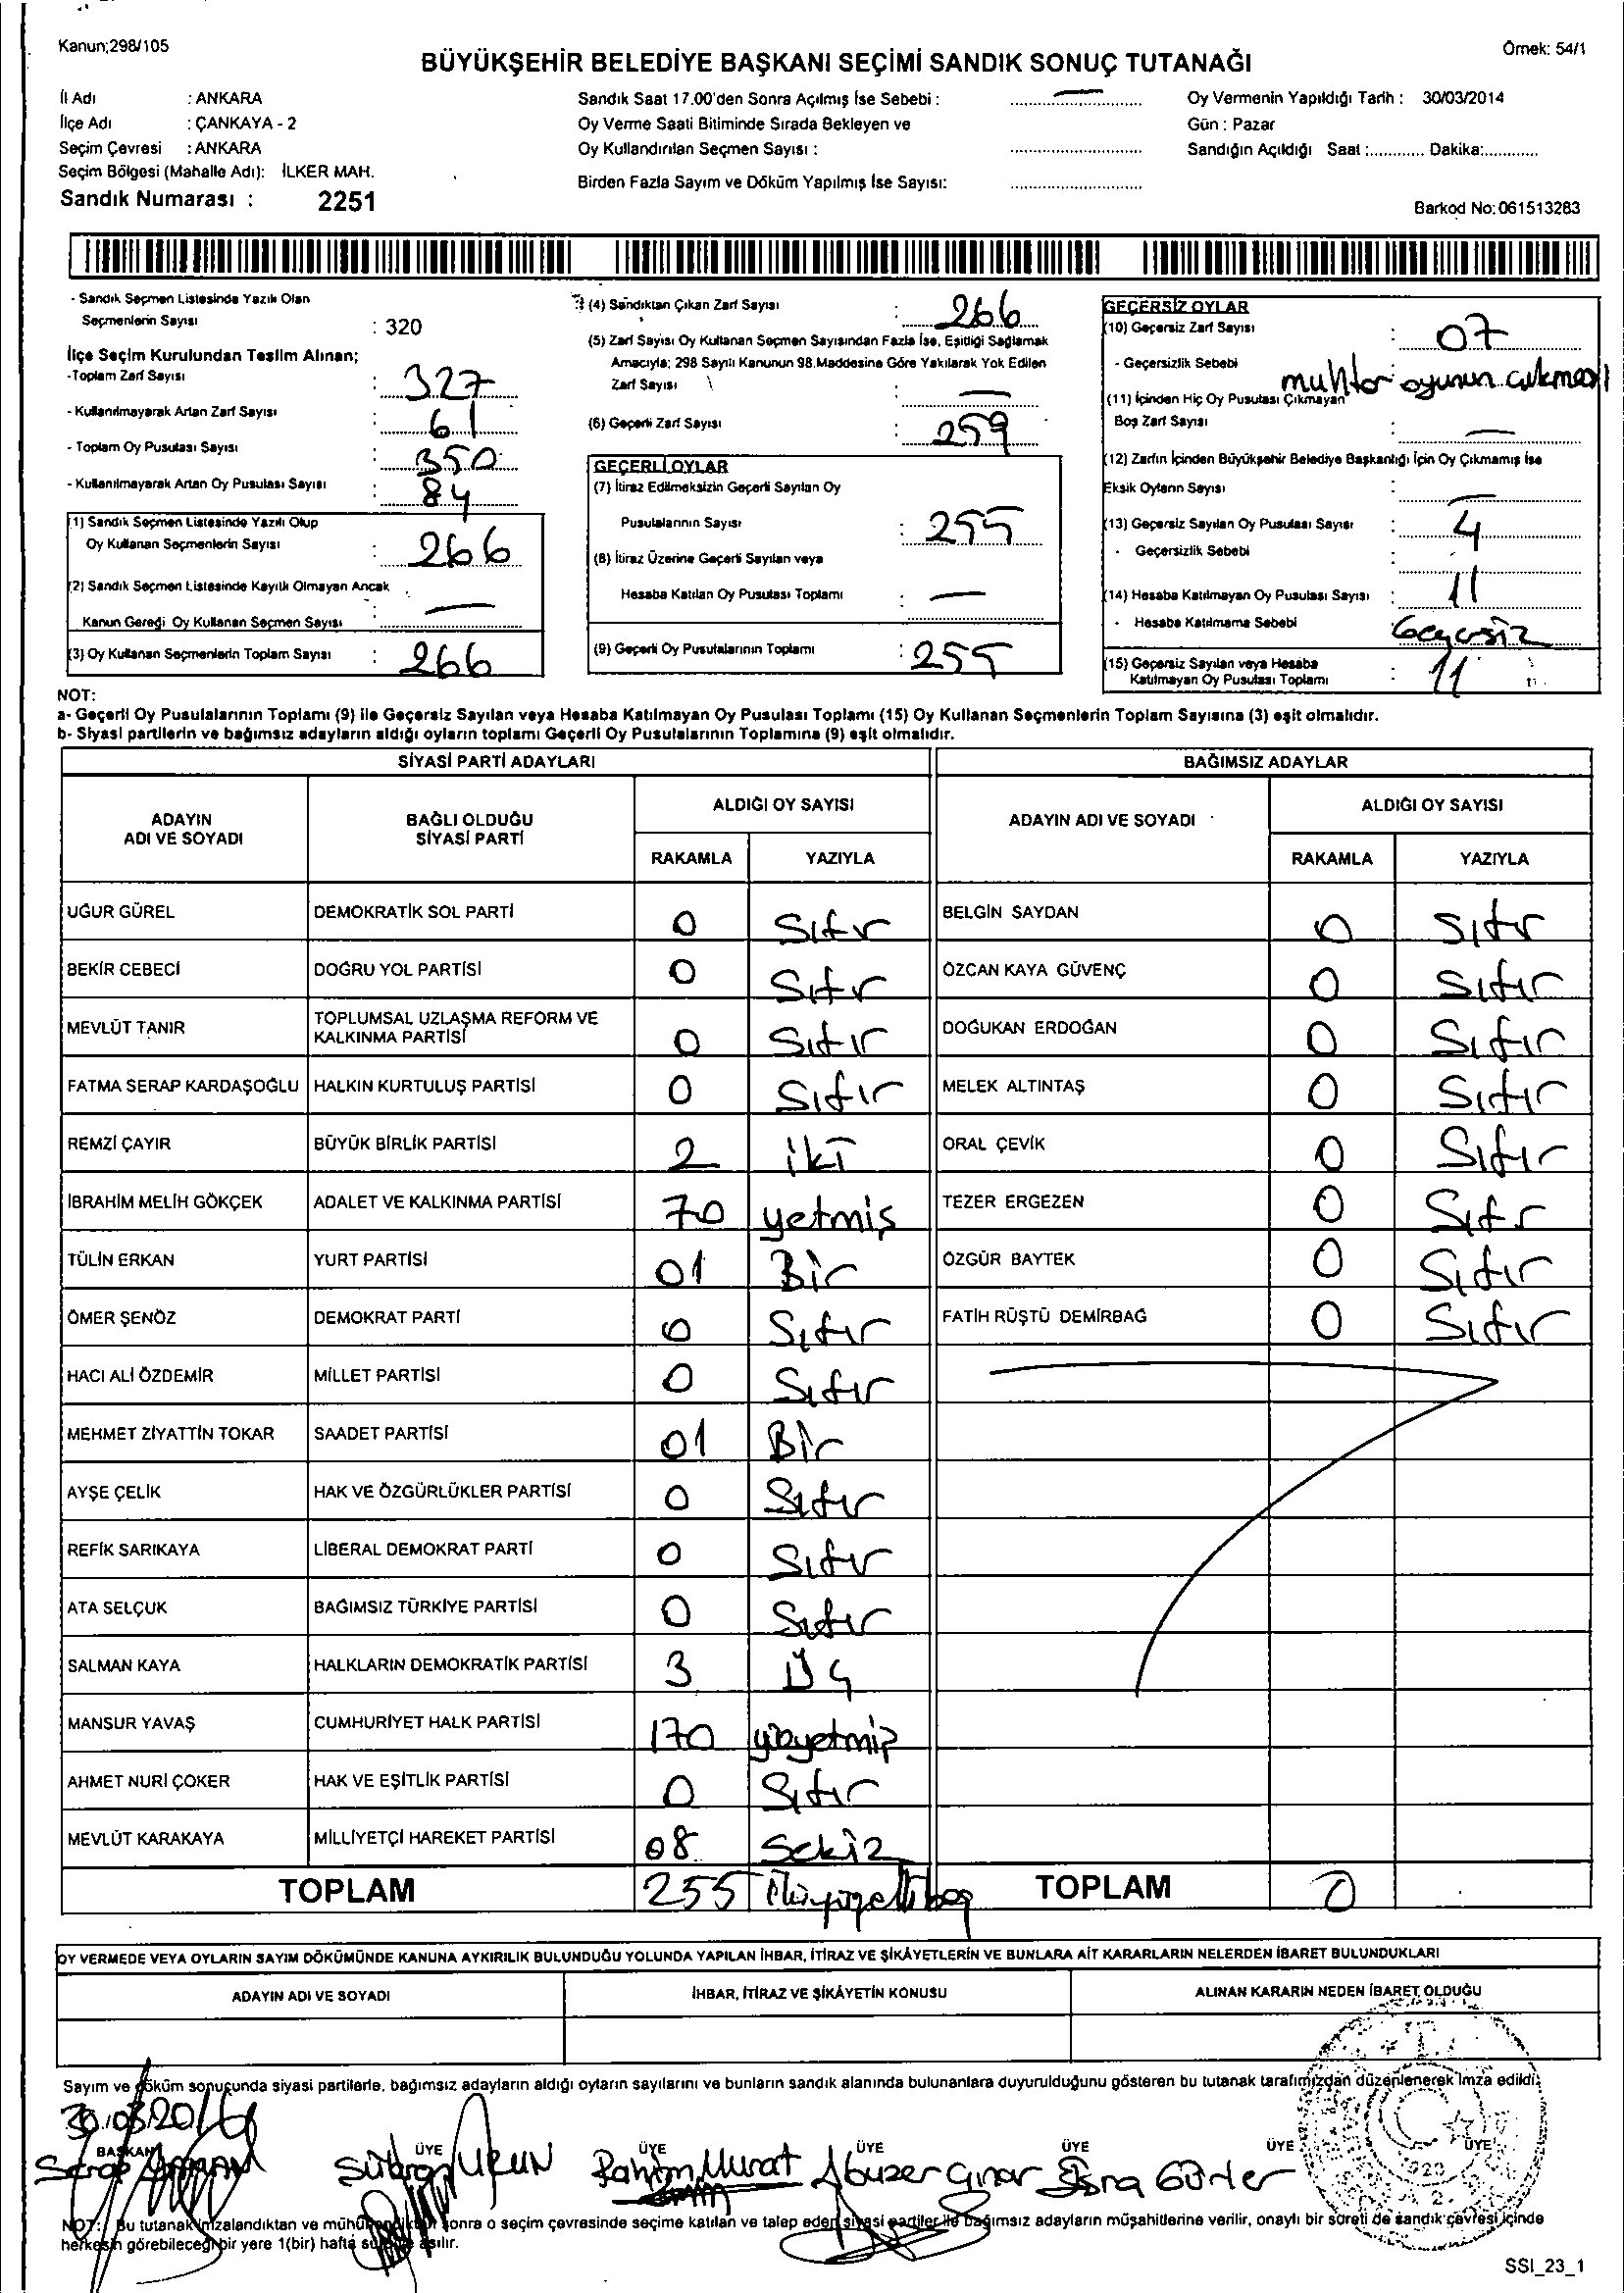 Kanun;298/105
Örnek: 54/1
BÜYÜKŞEHİR BELEDİYE BAŞKANI SEÇİMİ SANDIK SONUÇ TUTANAĞI
İl Adı : ANKARA
İlçe Adı : ÇANKAYA - 2
Seçim Çevresi : ANKARA
Seçim Bölgesi (Mahalle Adı): İLKER MAH.
Sandık Numarası : 2251
Sandık Saat 17.00'den Sonra Açılmış İse Sebebi : —
Oy Verme Saati Bitiminde Sırada Bekleyen ve
Oy Kullandırılan Seçmen Sayısı :
Birden Fazla Sayım ve Döküm Yapılmış İse Sayısı:
Oy Vermenin Yapıldığı Tarih : 30/03/2014
Gün : Pazar
Sandığın Açıldığı Saat :............ Dakika:............
Barkod No:061513283
- Sandık Seçmen Listesinde Yazılı Olan
Seçmenlerin Sayısı : 320
İlçe Seçim Kurulundan Teslim Alınan;
-Toplam Zarf Sayısı : 327
- Kullanılmayarak Artan Zarf Sayısı : 61
- Toplam Oy Pusulası Sayısı : 350
- Kullanılmayarak Artan Oy Pusulası Sayısı : 84
(1) Sandık Seçmen Listesinde Yazılı Olup
Oy Kullanan Seçmenlerin Sayısı : 266
(2) Sandık Seçmen Listesinde Kayıtlı Olmayan Ancak
Kanun Gereği Oy Kullanan Seçmen Sayısı : —
(3) Oy Kullanan Seçmenlerin Toplam Sayısı : 266
(4) Sandıktan Çıkan Zarf Sayısı : 266
(5) Zarf Sayısı Oy Kullanan Seçmen Sayısından Fazla İse, Eşitliği Sağlamak
Amacıyla; 298 Sayılı Kanunun 98.Maddesine Göre Yakılarak Yok Edilen
Zarf Sayısı : —
(6) Geçerli Zarf Sayısı : 259
GEÇERLİ OYLAR
(7) İtiraz Edilmeksizin Geçerli Sayılan Oy
Pusulalarının Sayısı : 255
(8) İtiraz Üzerine Geçerli Sayılan veya
Hesaba Katılan Oy Pusulası Toplamı : —
(9) Geçerli Oy Pusulalarının Toplamı : 255
GEÇERSİZ OYLAR
(10) Geçersiz Zarf Sayısı : 07
- Geçersizlik Sebebi muhtar oyunun çıkması
(11) İçinden Hiç Oy Pusulası Çıkmayan
Boş Zarf Sayısı : —
(12) Zarfın İçinden Büyükşehir Belediye Başkanlığı İçin Oy Çıkmamış İse
Eksik Oyların Sayısı : —
(13) Geçersiz Sayılan Oy Pusulası Sayısı : 4
- Geçersizlik Sebebi :
(14) Hesaba Katılmayan Oy Pusulası Sayısı : 11
- Hesaba Katılmama Sebebi Geçersiz
(15) Geçersiz Sayılan veya Hesaba
Katılmayan Oy Pusulası Toplamı : 11
NOT:
a- Geçerli Oy Pusulalarının Toplamı (9) ile Geçersiz Sayılan veya Hesaba Katılmayan Oy Pusulası Toplamı (15) Oy Kullanan Seçmenlerin Toplam Sayısına (3) eşit olmalıdır.
b- Siyasi partilerin ve bağımsız adayların aldığı oyların toplamı Geçerli Oy Pusulalarının Toplamına (9) eşit olmalıdır.
SİYASİ PARTİ ADAYLARI
BAĞIMSIZ ADAYLAR
ADAYIN
ADI VE SOYADI
BAĞLI OLDUĞU
SİYASİ PARTİ
ALDIĞI OY SAYISI
RAKAMLA YAZIYLA
ADAYIN ADI VE SOYADI
ALDIĞI OY SAYISI
RAKAMLA YAZIYLA
UĞUR GÜREL DEMOKRATİK SOL PARTİ 0 Sıfır BELGİN SAYDAN 0 Sıfır
BEKİR CEBECİ DOĞRU YOL PARTİSİ 0 Sıfır ÖZCAN KAYA GÜVENÇ 0 Sıfır
MEVLÜT TANIR TOPLUMSAL UZLAŞMA REFORM VE
KALKINMA PARTİSİ 0 Sıfır DOĞUKAN ERDOĞAN 0 Sıfır
FATMA SERAP KARDAŞOĞLU HALKIN KURTULUŞ PARTİSİ 0 Sıfır MELEK ALTINTAŞ 0 Sıfır
REMZİ ÇAYIR BÜYÜK BİRLİK PARTİSİ 2 iki ORAL ÇEVİK 0 Sıfır
İBRAHİM MELİH GÖKÇEK ADALET VE KALKINMA PARTİSİ 70 yetmiş TEZER ERGEZEN 0 Sıfır
TÜLİN ERKAN YURT PARTİSİ 01 Bir ÖZGÜR BAYTEK 0 Sıfır
ÖMER ŞENÖZ DEMOKRAT PARTİ 0 Sıfır FATİH RÜŞTÜ DEMİRBAĞ 0 Sıfır
HACI ALİ ÖZDEMİR MİLLET PARTİSİ 0 Sıfır
MEHMET ZİYATTİN TOKAR SAADET PARTİSİ 01 Bir
AYŞE ÇELİK HAK VE ÖZGÜRLÜKLER PARTİSİ 0 Sıfır
REFİK SARIKAYA LİBERAL DEMOKRAT PARTİ 0 Sıfır
ATA SELÇUK BAĞIMSIZ TÜRKİYE PARTİSİ 0 Sıfır
SALMAN KAYA HALKLARIN DEMOKRATİK PARTİSİ 3 Üç
MANSUR YAVAŞ CUMHURİYET HALK PARTİSİ 170 yüzyetmiş
AHMET NURİ ÇOKER HAK VE EŞİTLİK PARTİSİ 0 Sıfır
MEVLÜT KARAKAYA MİLLİYETÇİ HAREKET PARTİSİ 08 Sekiz
TOPLAM 255 ikiyüzellibeş TOPLAM 0
OY VERMEDE VEYA OYLARIN SAYIM DÖKÜMÜNDE KANUNA AYKIRILIK BULUNDUĞU YOLUNDA YAPILAN İHBAR, İTİRAZ VE ŞİKÂYETLERİN VE BUNLARA AİT KARARLARIN NELERDEN İBARET BULUNDUKLARI
ADAYIN ADI VE SOYADI İHBAR, İTİRAZ VE ŞİKÂYETİN KONUSU ALINAN KARARIN NEDEN İBARET OLDUĞU
Sayım ve döküm sonucunda siyasi partilerle, bağımsız adayların aldığı oyların sayılarını ve bunların sandık alanında bulunanlara duyurulduğunu gösteren bu tutanak tarafımızdan düzenlenerek imza edildi.
30.03.2014
BAŞKAN ÜYE ÜYE ÜYE ÜYE ÜYE ÜYE
Serap Rahim Murat Abuzer Çınar Esra Gürler
NOT: Bu tutanak imzalandıktan ve mühürlendikten sonra o seçim çevresinde seçime katılan ve talep eden siyasi partiler ile bağımsız adayların müşahitlerine verilir, onaylı bir sureti de sandık çevresi içinde
herkesin görebileceği bir yere 1(bir) hafta süreyle asılır.
SSI_23_1